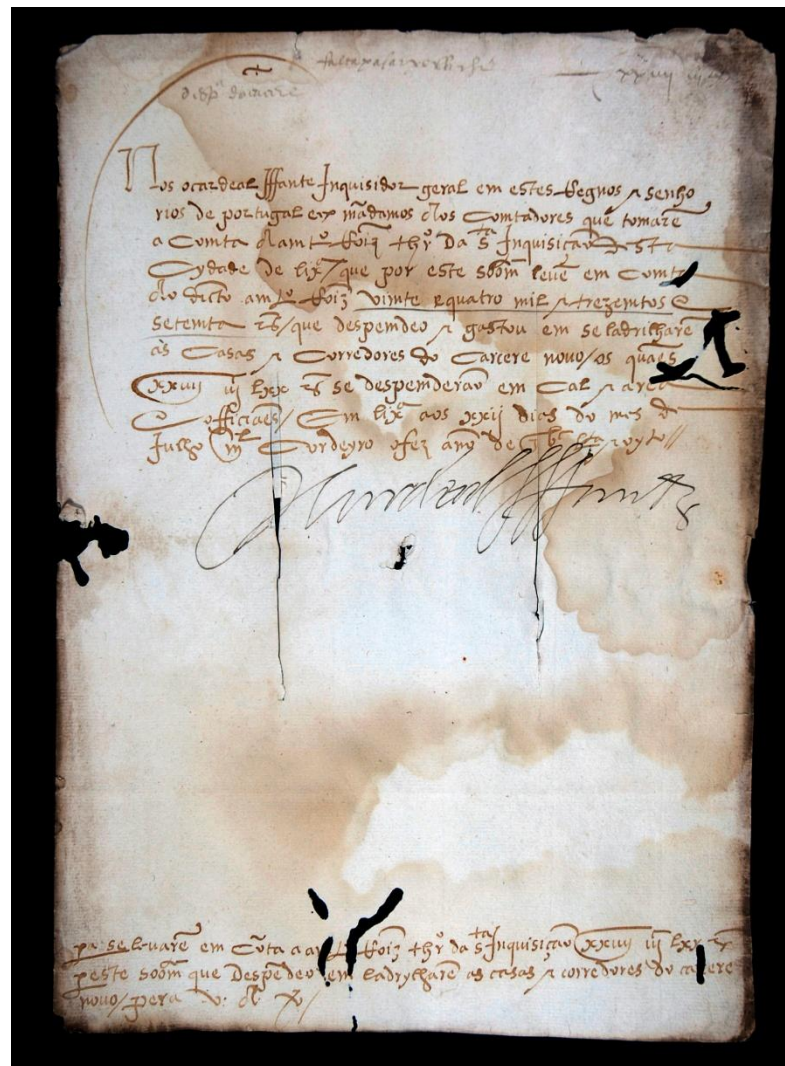 desp^a do carcere
Nos o cardeal Iffante Inquisidor geral em estes Regnos e senho
rios de portugal ex mãdamos aos Comtadores que tomarẽ
a Comta a amt^o Roiz thr^o da s^ta Inquisição desta
Cydade de lix^a / que por este soom levẽ em Comta
ao dicto amt^o Roiz vimte e quatro mil e trezemtos e
setemta rs / que despemdeo e gastou em se ladrilharẽ
as Casas e Corredores do Carcere novo / os quaes
xxiiij iij lxx rs se despemderão em Cal e area
e officiaes / Em lix^a aos xxij dias do mes de
Julho m^el Cordeyro o fez amno de oyto //
O Cardeal Iffante
pa se levarẽ em cõta a amt^o Roiz thr^o da s^ta Inquisição xxiiij iij lxx rs
p este soom que Despẽdeo em ladrylharẽ as casas e corredores do carcere
novo / pera v.